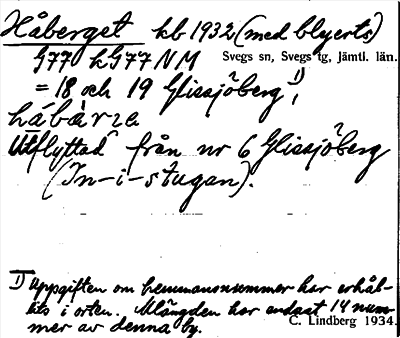 Håberget kb 1932 (med blyerts)
G77 hG77 NM
Svegs sn, Svegs tg, Jämtl. län.
= 18 och 19 Glissjöberg 1)
hábàrʒe
Utflyttad från nr 6 Glissjöberg
(In-i-stugan).
1) Uppgiften om hemmansnummer har erhål-
lits i orten. Mlängden har endast 14 num-
mer av denna by.
C. Lindberg 1934.